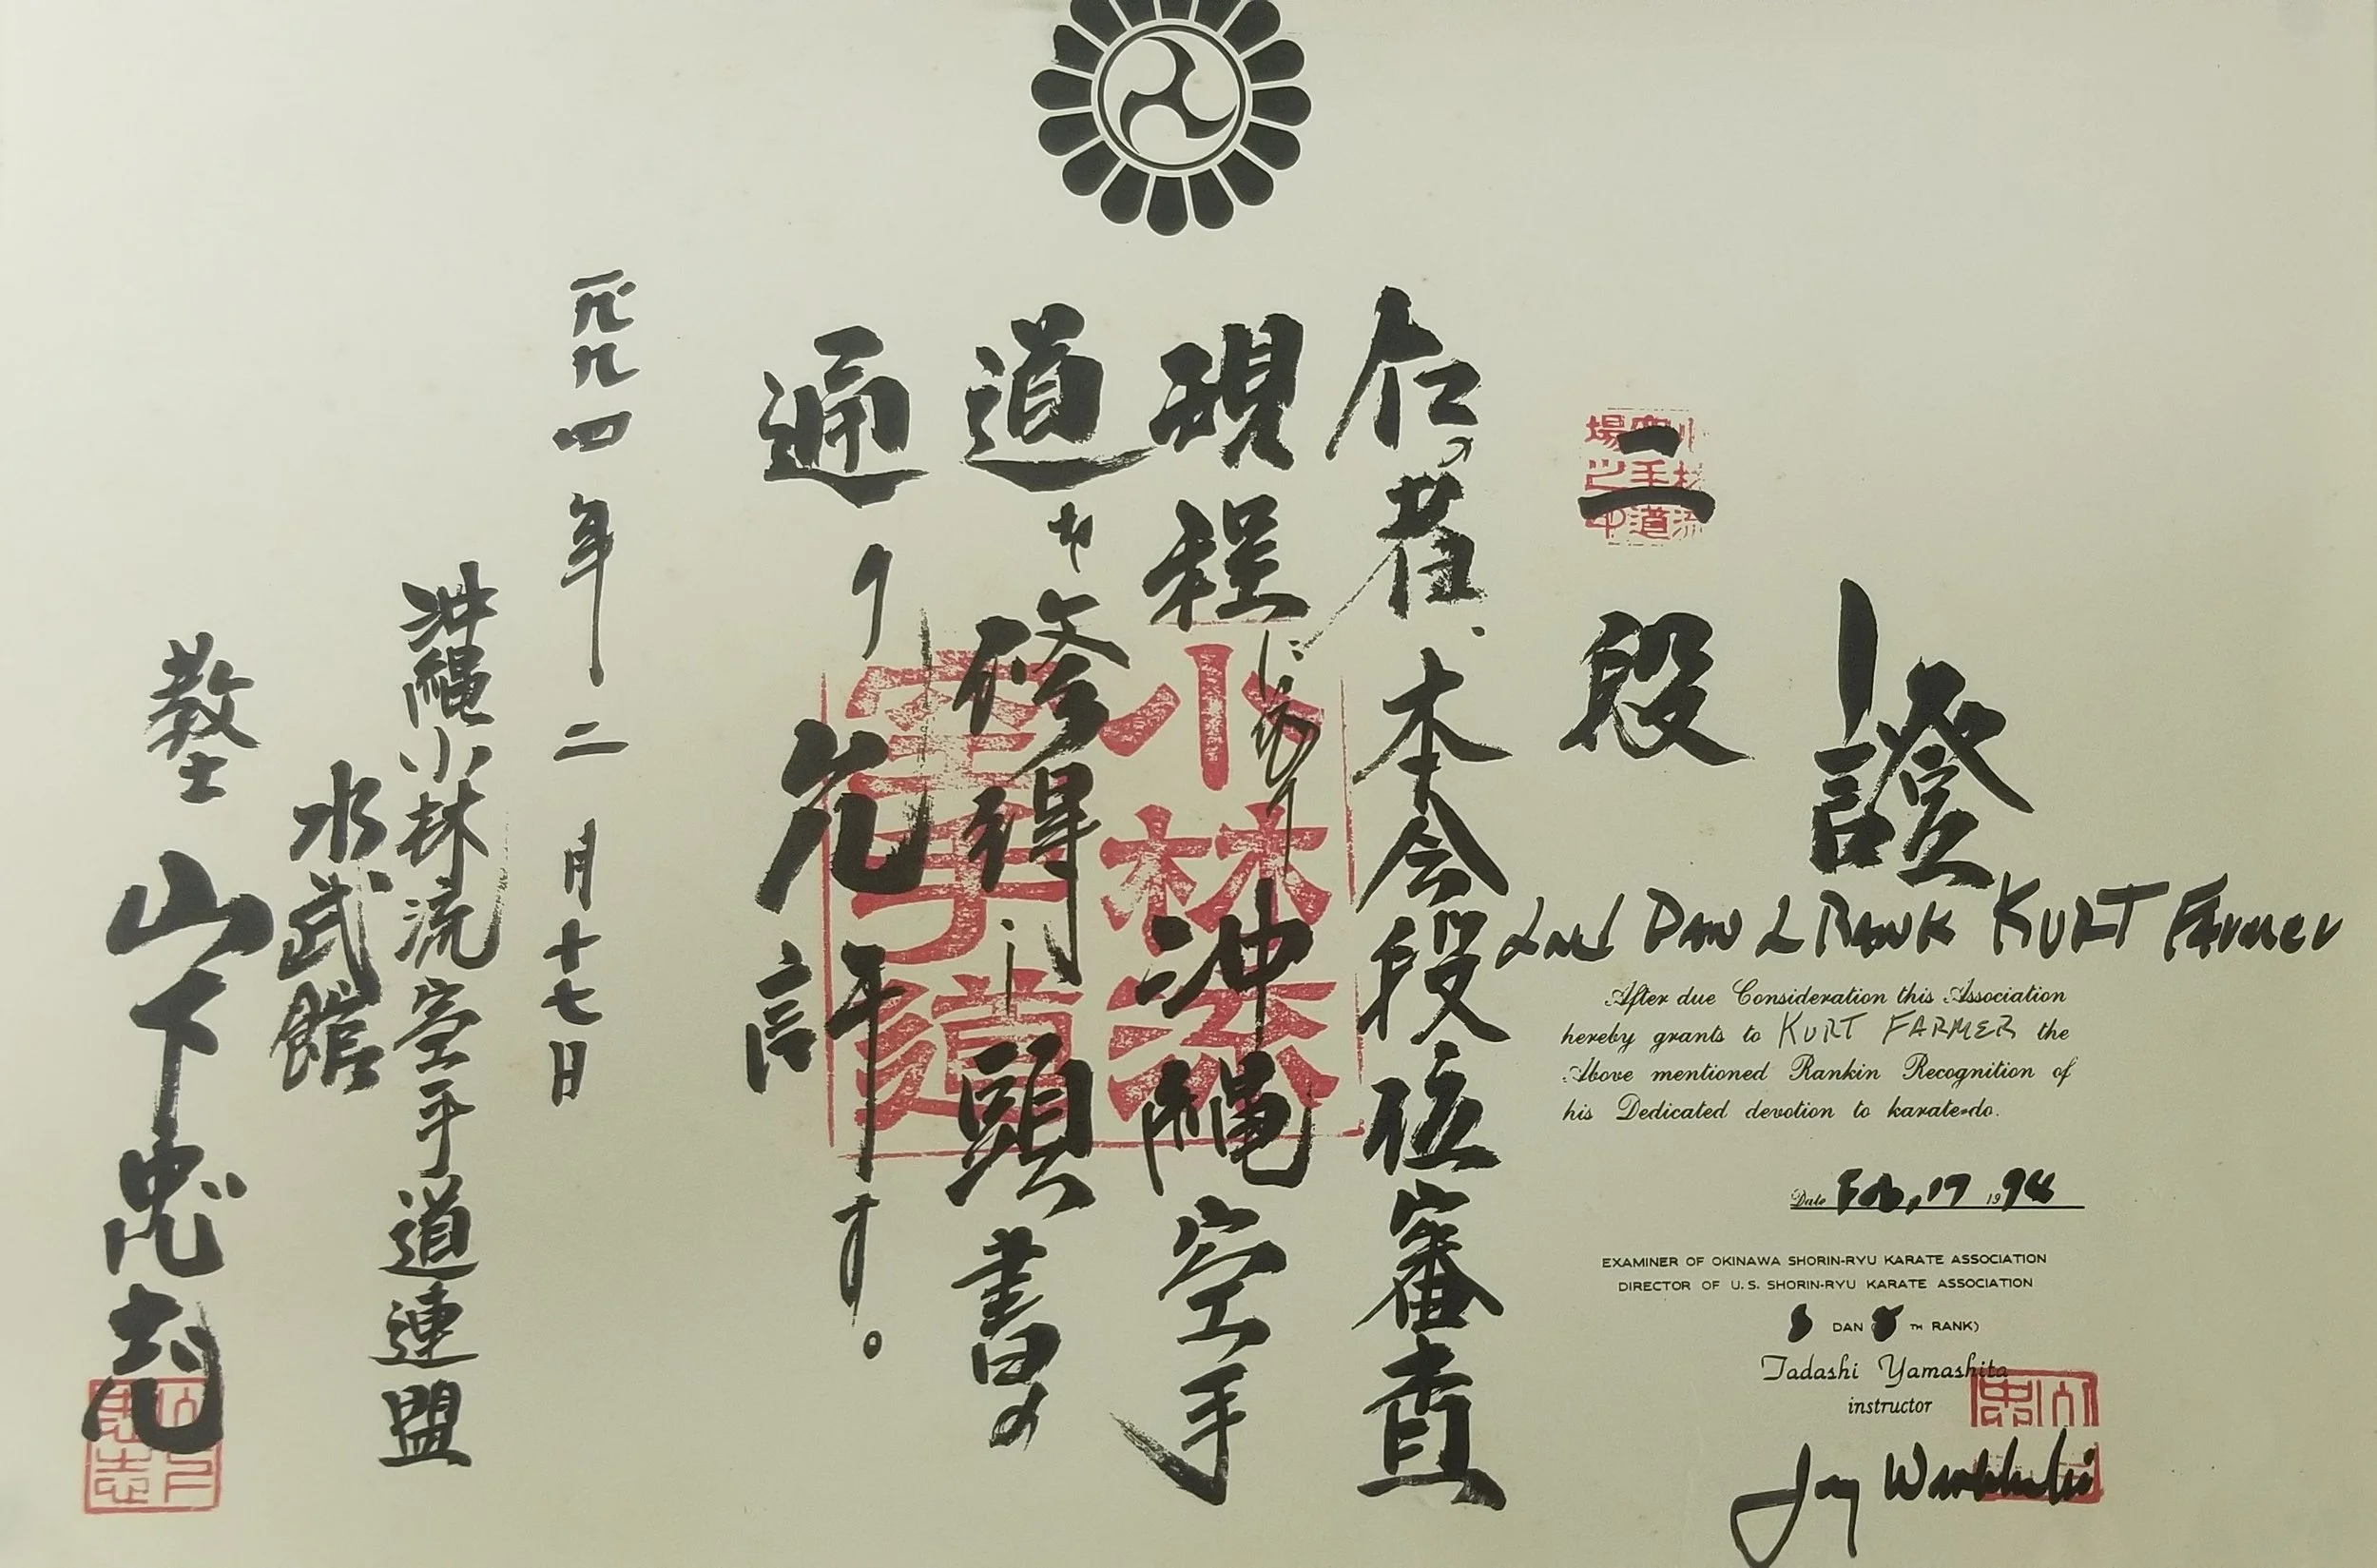 證
二段
仁者、本会段位審査
規程に依り沖縄空手
道を修得し頭書の
通り允許す。
一九九四年二月十七日
沖縄小林流空手道連盟
水武館
教士 山下忠志
2nd DAN 2 RANK KURT Farmer
After due Consideration this Association
hereby grants to KURT FARMER the
Above mentioned Rankin Recognition of
his Dedicated devotion to karate-do.
Date Feb, 17 1994
EXAMINER OF OKINAWA SHORIN-RYU KARATE ASSOCIATION
DIRECTOR OF U.S. SHORIN-RYU KARATE ASSOCIATION
8 DAN 8 TH RANK)
Tadashi Yamashita
instructor
小林流
空手道